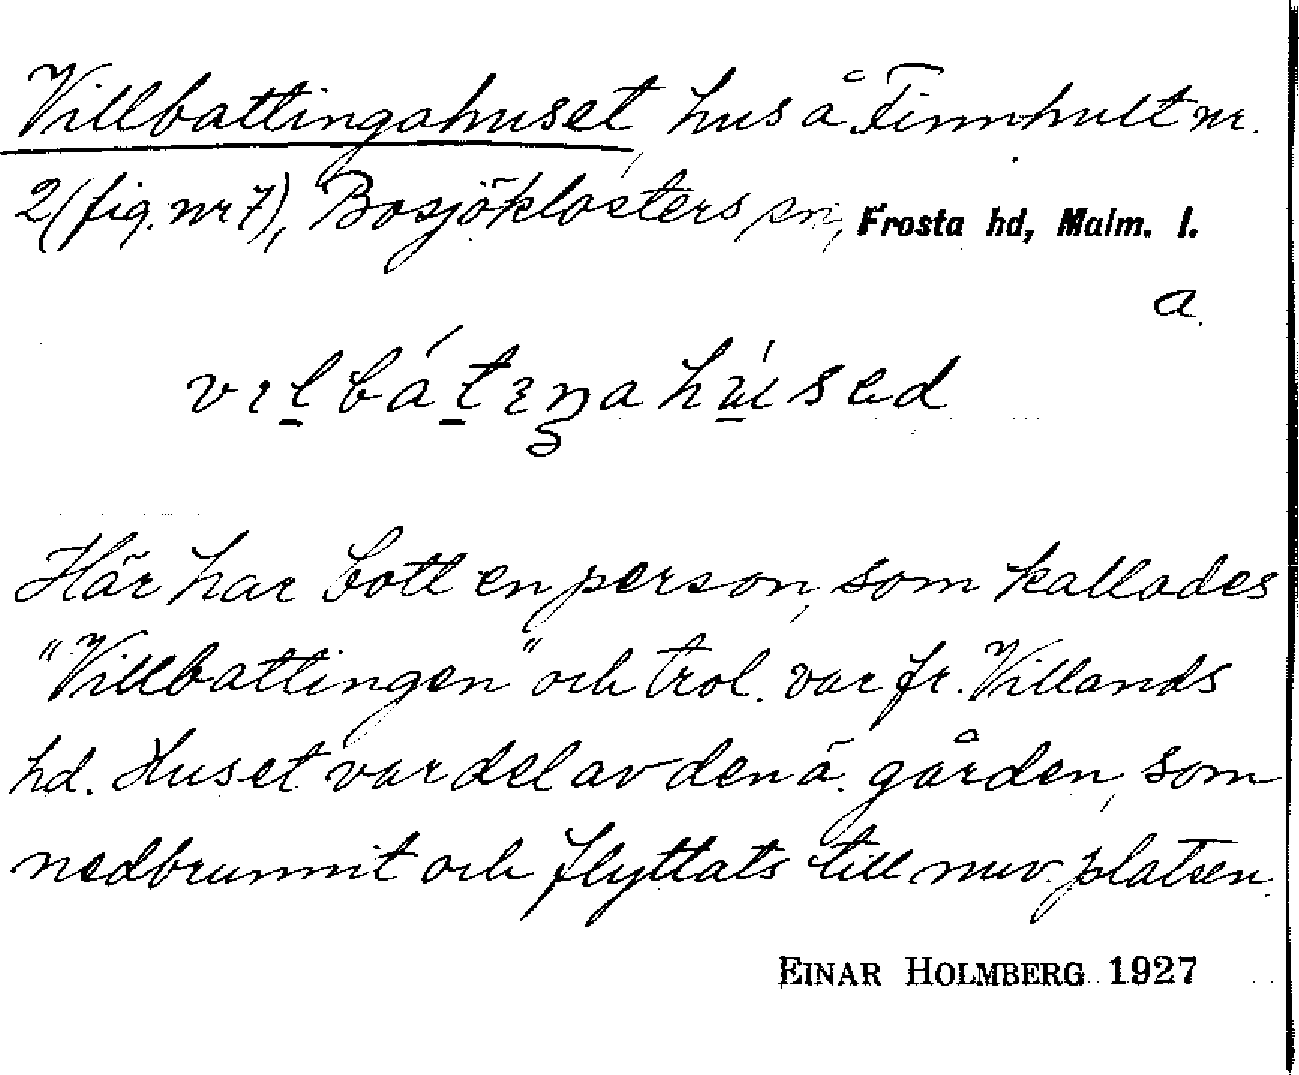 Villbattingahuset, hus å Finnhult nr.
2 (fig. nr 7), Bosjöklosters sn, Frosta hd, Malm. l.
a.
Här har bott en person, som kallades
"Villbattingen" och trol. var fr. Villands
hd. Huset var del av den ä. gården, som
nedbrunnit och flyttats till nuv. platsen.
EINAR HOLMBERG 1927